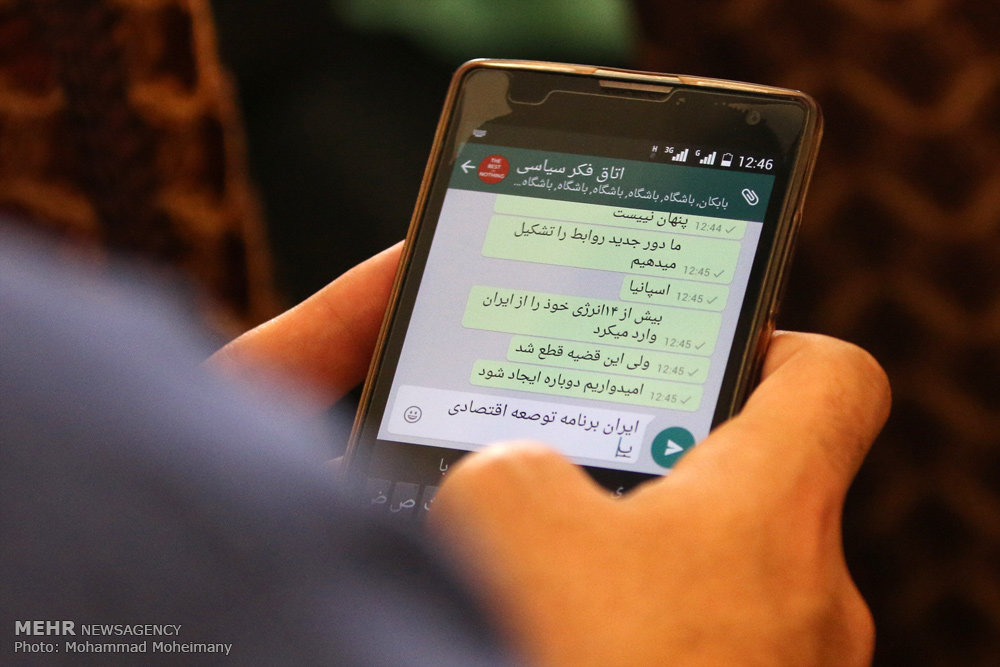 H 3G G 12:46
THE
BEST
NOTHING
اتاق فکر سیاسی
بابکان, باشگاه, باشگاه, باشگاه, باشگاه, باشگاه...
پنهان نییست
12:44
ما دور جدید روابط را تشکیل
میدهیم
12:45
اسپانیا
12:45
بیش از ۱۴انرژی خوذ را از ایران
وارد میکرد
12:45
ولی این قضیه قطع شد
12:45
امیدواریم دوباره ایجاد شود
12:45
ایران برنامه توصعه اقتصادی
یا
با
ص ض
MEHR NEWSAGENCY
Photo: Mohammad Moheimany